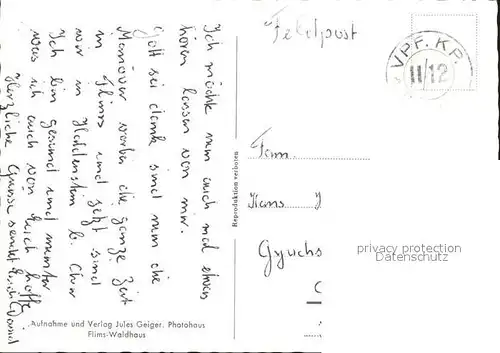 Feldpost
VPF. K.P.
II/12
Ich möchte nun auch mal etwas
hören lassen von mir.
Gott sei dank sind nun die
Manöver vorbei die ganze Zeit
in Flims und jetzt sind
wir in Haldenstein b. Chur
Ich bin gesund und munter
was ich auch von Euch hoffe
Herzliche Grüsse sendet Euch David
Reproduktion verboten
Fam.
Hans
Gyuchs
privacy protection
Datenschutz
Aufnahme und Verlag Jules Geiger, Photohaus
Flims-Waldhaus